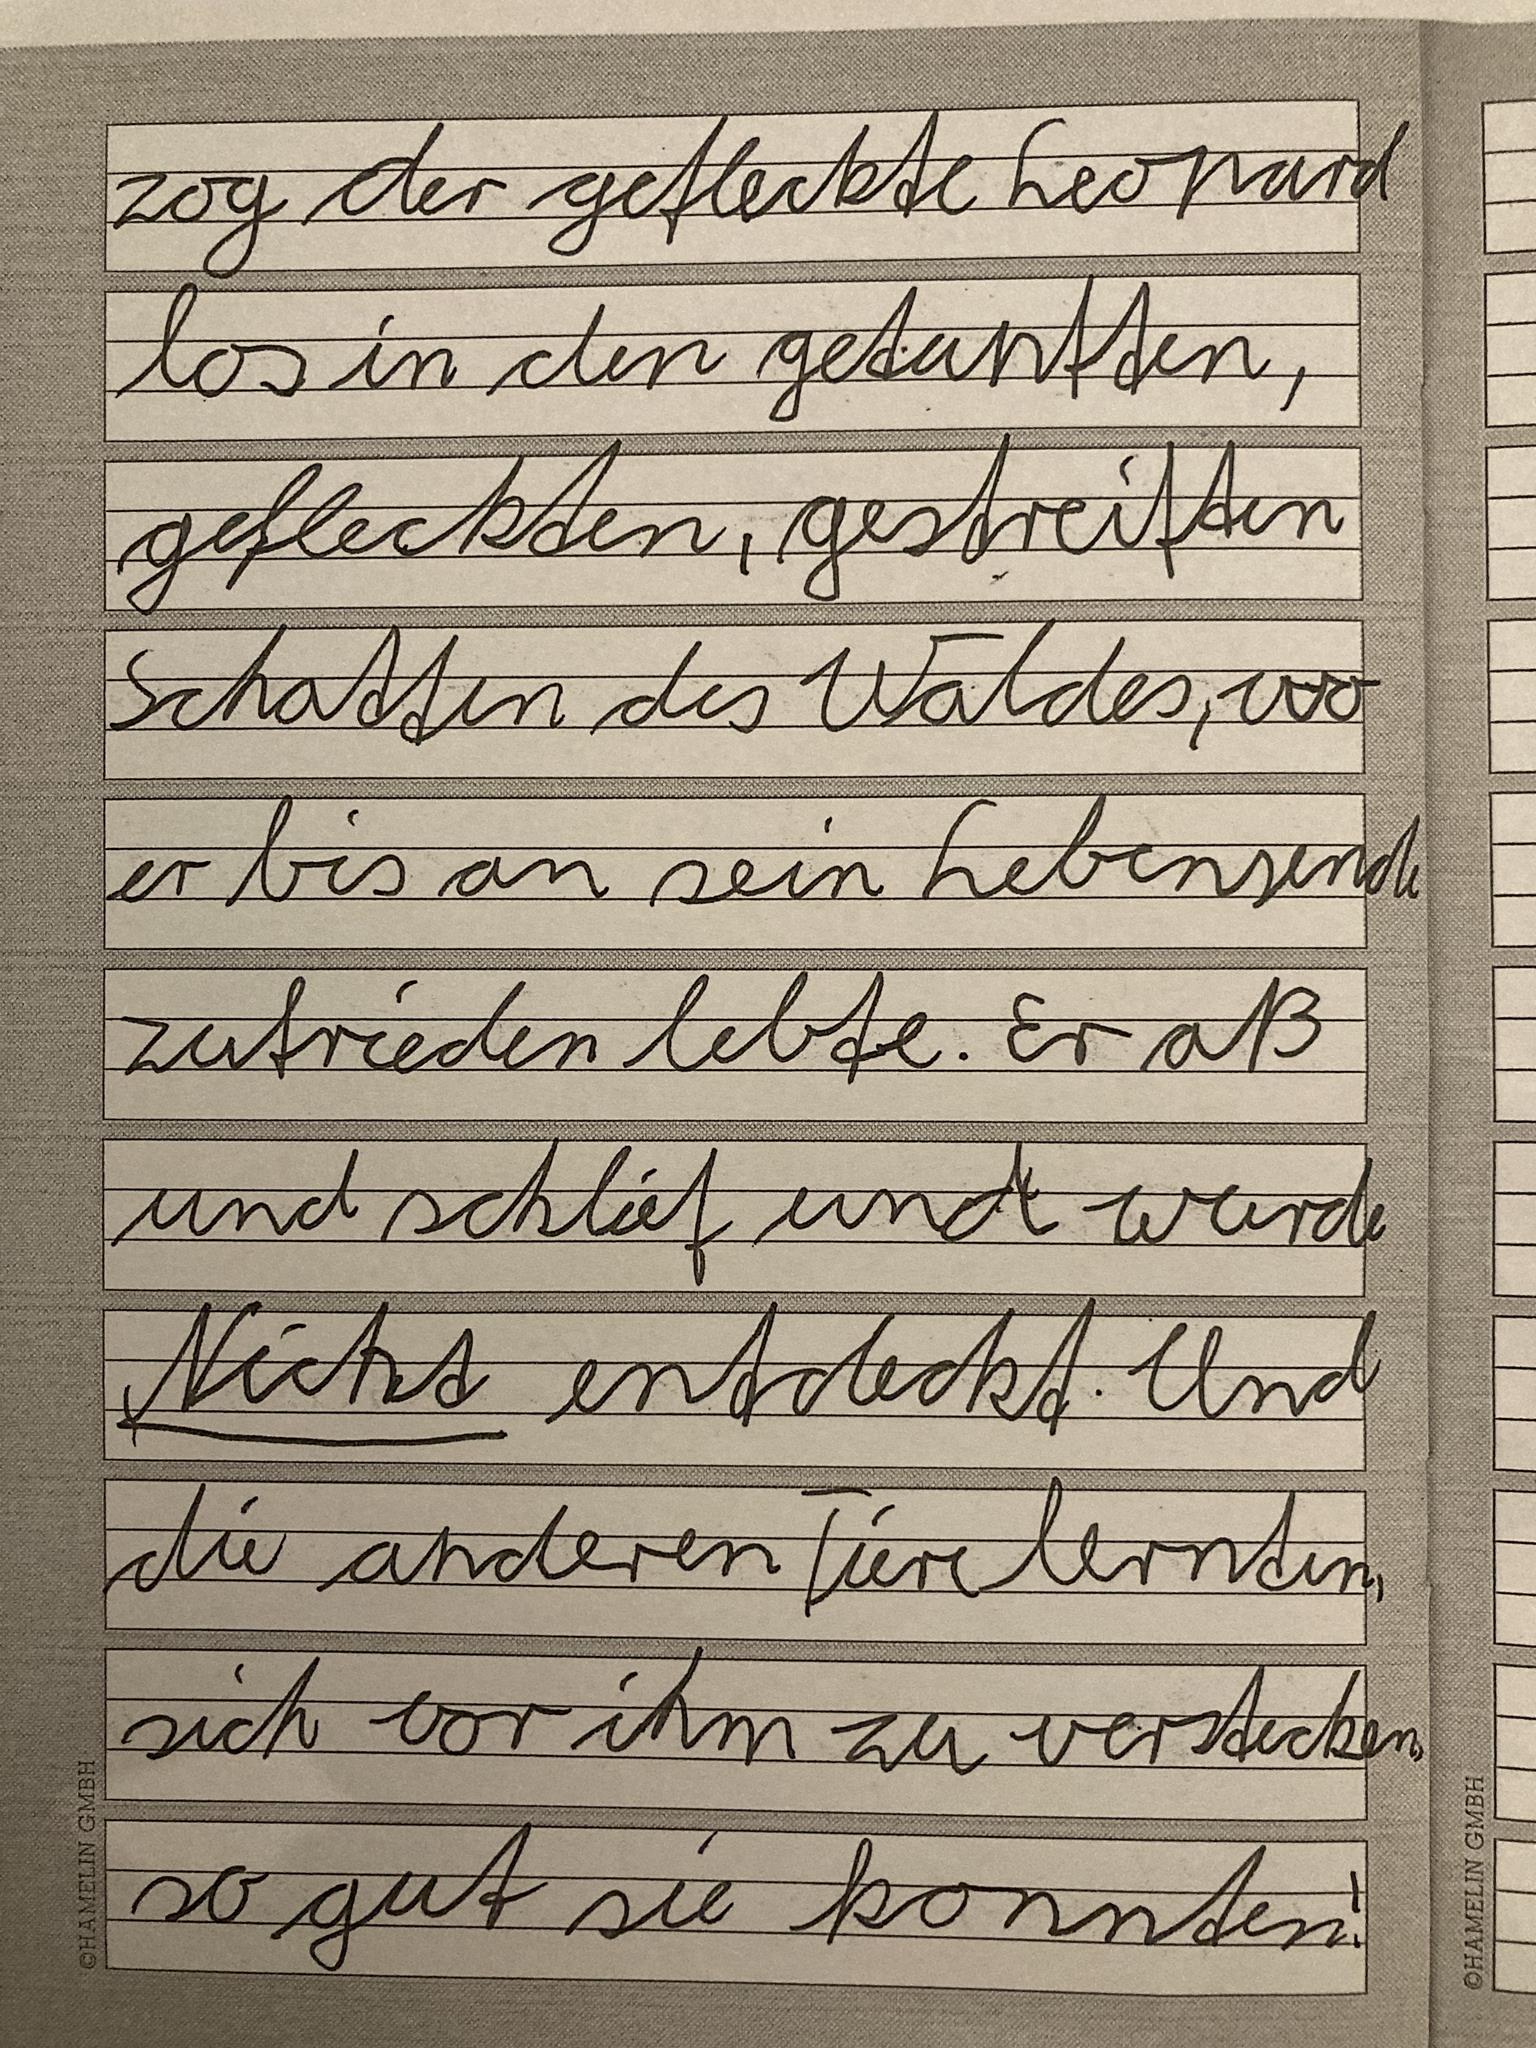 zog der gefleckte Leopard
los in den getupften,
gefleckten, gestreiften
Schatten des Waldes, wo
er bis an sein Lebensende
zufrieden lebte. Er aß
und schlief und wurde
Nicht entdeckt. Und
die anderen Tiere lernten,
sich vor ihm zu verstecken,
so gut sie konnten!
©HAMELIN GMBH
©HAMELIN GMBH